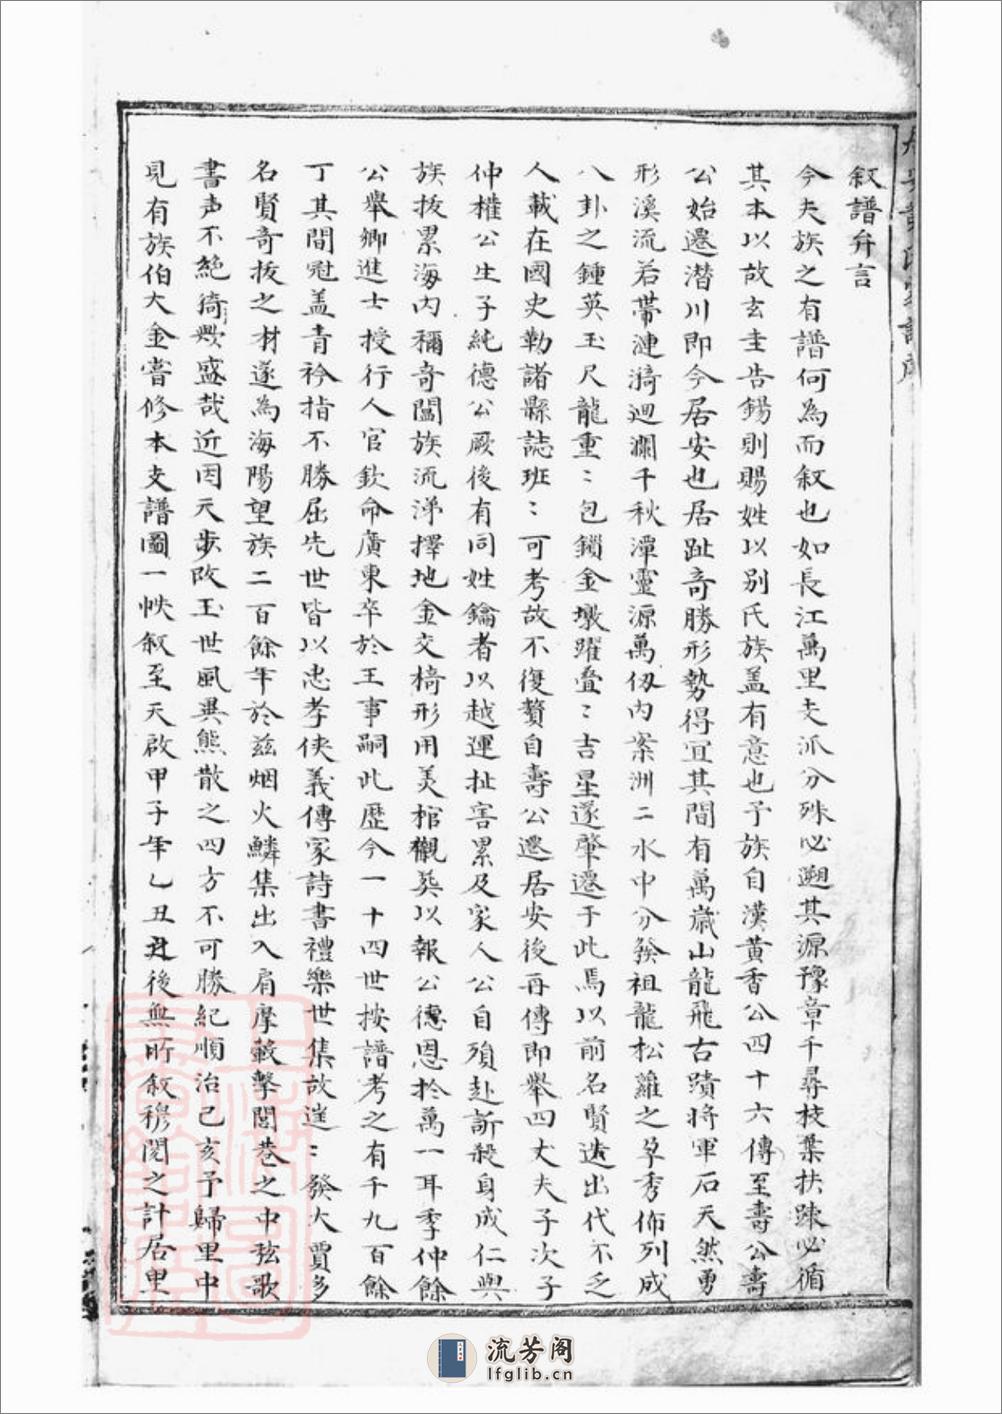 叙譜弁言
今夫族之有譜何為而叙也如長江萬里支派分殊必遡其源豫章千尋校葉扶踈必循
其本以故玄圭告錫則賜姓以别氏族盖有意也予族自漢黄香公四十六傳至壽公壽
公始遷潜川即今居安也居趾竒勝形勢得宜其間有萬嵗山龍飛古蹟将軍石天然勇
形溪流若帶漣漪迴瀾千秋潭靈源萬仭内案洲二水中分發祖龍松蘿之孕秀佈列成
八卦之鍾英玉尺龍重〻包鎖金墩躍叠〻吉星遂肇遷于此焉以前名賢迭出代不乏
人載在國史勒諸縣誌班〻可考故不復贅自壽公遷居安後再傳即舉四丈夫子次子
仲權公生子純德公厥後有同姓鑰者以越運扯害累及家人公自殞赴訴殺身成仁與
族拔累海内稱奇闔族流涕擇地金交椅形用美棺槨葬以報公德恩於萬一耳季仲餘
公舉鄉進士授行人官欽命廣東卒於王事嗣此歴今一十四世按譜考之有千九百餘
丁其間冠盖青衿指不勝屈先世皆以忠孝侠義傳家詩書禮樂世集故進〻發大賈多
名賢竒抜之材遂為海陽望族二百餘年於兹烟火鱗集出入肩摩轂擊閭巷之中弦歌
書声不絶猗歟盛哉近因天步改玉世風異態散之四方不可勝紀順治己亥予歸里中
見有族伯大金嘗修本支譜圖一帙叙至天啟甲子年乙丑丑後無所叙穆閔之計居里
流芳阁
lfglib.cn